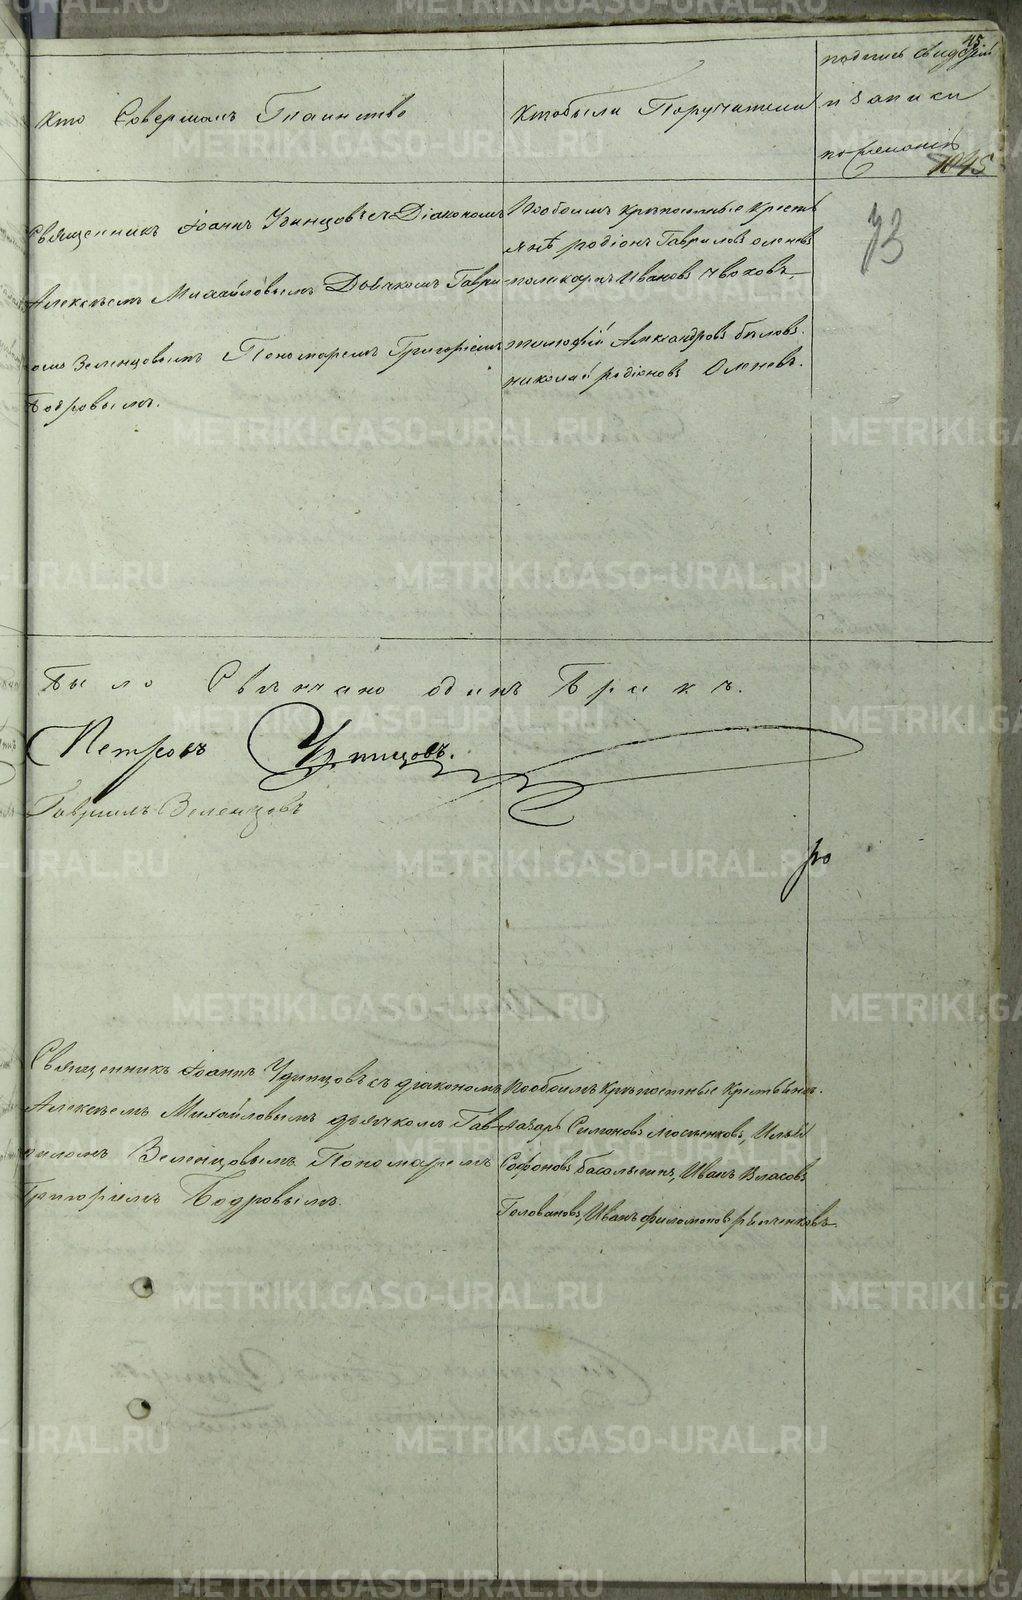 45.
Кто Совершалъ Таинство
Кто были Поручители
подпись свидѣтелей
и записи
1045
73
Священникъ Іоаннъ Удинцовъ съ Діакономъ
Алексѣемъ Михайловымъ Дьячкомъ Гаври-
ломъ Зеленцовымъ Пономаремъ Григоріемъ
Бодровымъ.
По обоимъ крѣпостные кресть
янѣ родіонъ Гавриловъ оленевъ
поликарпъ Ивановъ
тимофій Александровъ бѣловъ.
николай родіоновъ Оленевъ.
Было Свѣнчано одинъ Бракъ.
Петровъ Удинцовъ.
Гавриилъ Зеленцовъ
ро
Священникъ Іоаннъ Удинцовъ съ діакономъ
Алексѣемъ Михайловымъ дьячкомъ Гав-
риломъ Зеленцовымъ Пономаремъ
Григоріемъ Бодровымъ.
По обоимъ Крѣпостные Крестьяне.
Лазарь Симоновъ Илья
Софоновъ Иванъ Власовъ
Головановъ, Иванъ филомоновъ
METRIKI.GASO-URAL.RU